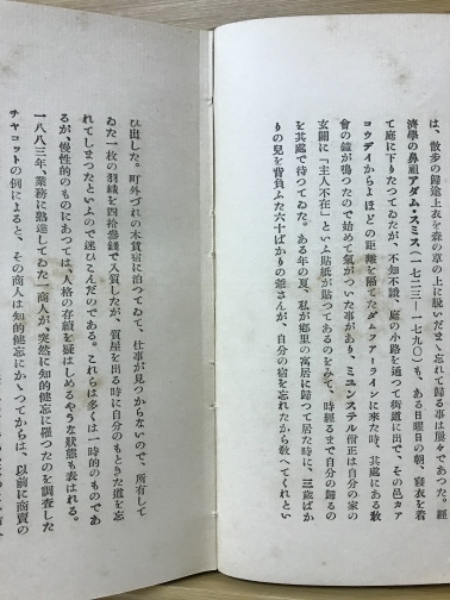 は、散歩の歸途上衣を森の草の上に脱いだまゝ忘れて歸る事は屡々であつた。經
濟學の鼻祖アダム・スミス(一七二三―一七九〇)も、ある日曜日の朝、寝衣を着
て庭に下りたつてゐたが、不知不識、庭の小路を通つて街道に出で、その邑カア
コウデイからよほどの距離を隔てたダムフアーラインに來た時、其處にある敎
會の鐘が鳴つたので始めて氣がついた事があり、ミユンステル僧正は自分の家の
玄關に「主人不在」といふ貼紙が貼つてあるのをみて、時經るまで自分の歸るの
を其處で待つてゐた。ある年の夏、私が郷里の寓居に歸つて居た時に、三歳ばか
りの兒を背負ふた六十ばかりの爺さんが、自分の宿を忘れたから敎へてくれとい
ひ出した。町外づれの木賃宿に泊つてゐて、仕事が見つからないので、所有して
ゐた一枚の羽織を四拾參錢で入質したが、質屋を出る時に自分のもときた道を忘
れてしまつたといふので迷ひこんだのである。これらは多くは一時的のものであ
るが、慢性的のものにあつては、人格の存續を疑はしめるやうな狀態も表はれる。
一八八三年、業務に熟達してゐた一商人が、突然に知的健忘に罹つたのを調査した
チヤコットの例によると、その商人は知的健忘にかゝつてからは、以前に商賣の